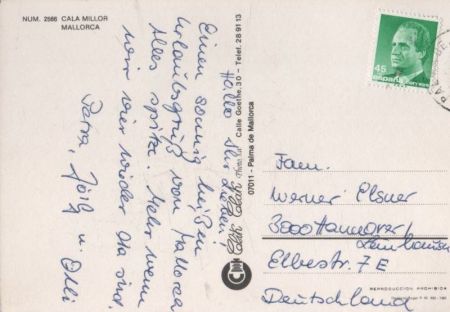 NUM. 2566 CALA MILLOR
MALLORCA
Hallo Ihr Lieben,
Einen sonnig heißen
Urlaubsgruß von Mallorca
Alles spitze. Mehr wenn
wir wieder da sind.
Petra, Jörg u. Olli
Calle Goethe, 30 - Telef. 28 91 13
07011 - Palma de Mallorca
45
ESPAÑA
Fam.
Werner Elsner
3000 Hannover 1
Leinhausen
Elbestr. 7 E
Deutschland
REPRODUCCION PROHIBIDA